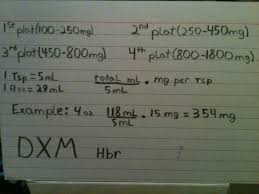 1st plat(100-250mg) 2nd plat(250-450mg)
3rd plat(450-800mg) 4th plat(800-1800mg)
1 Tsp = 5mL total mL / 5mL · mg per tsp
1 floz = 28mL
Example: 4oz 118mL / 5mL · 15mg = 354mg
DXM Hbr